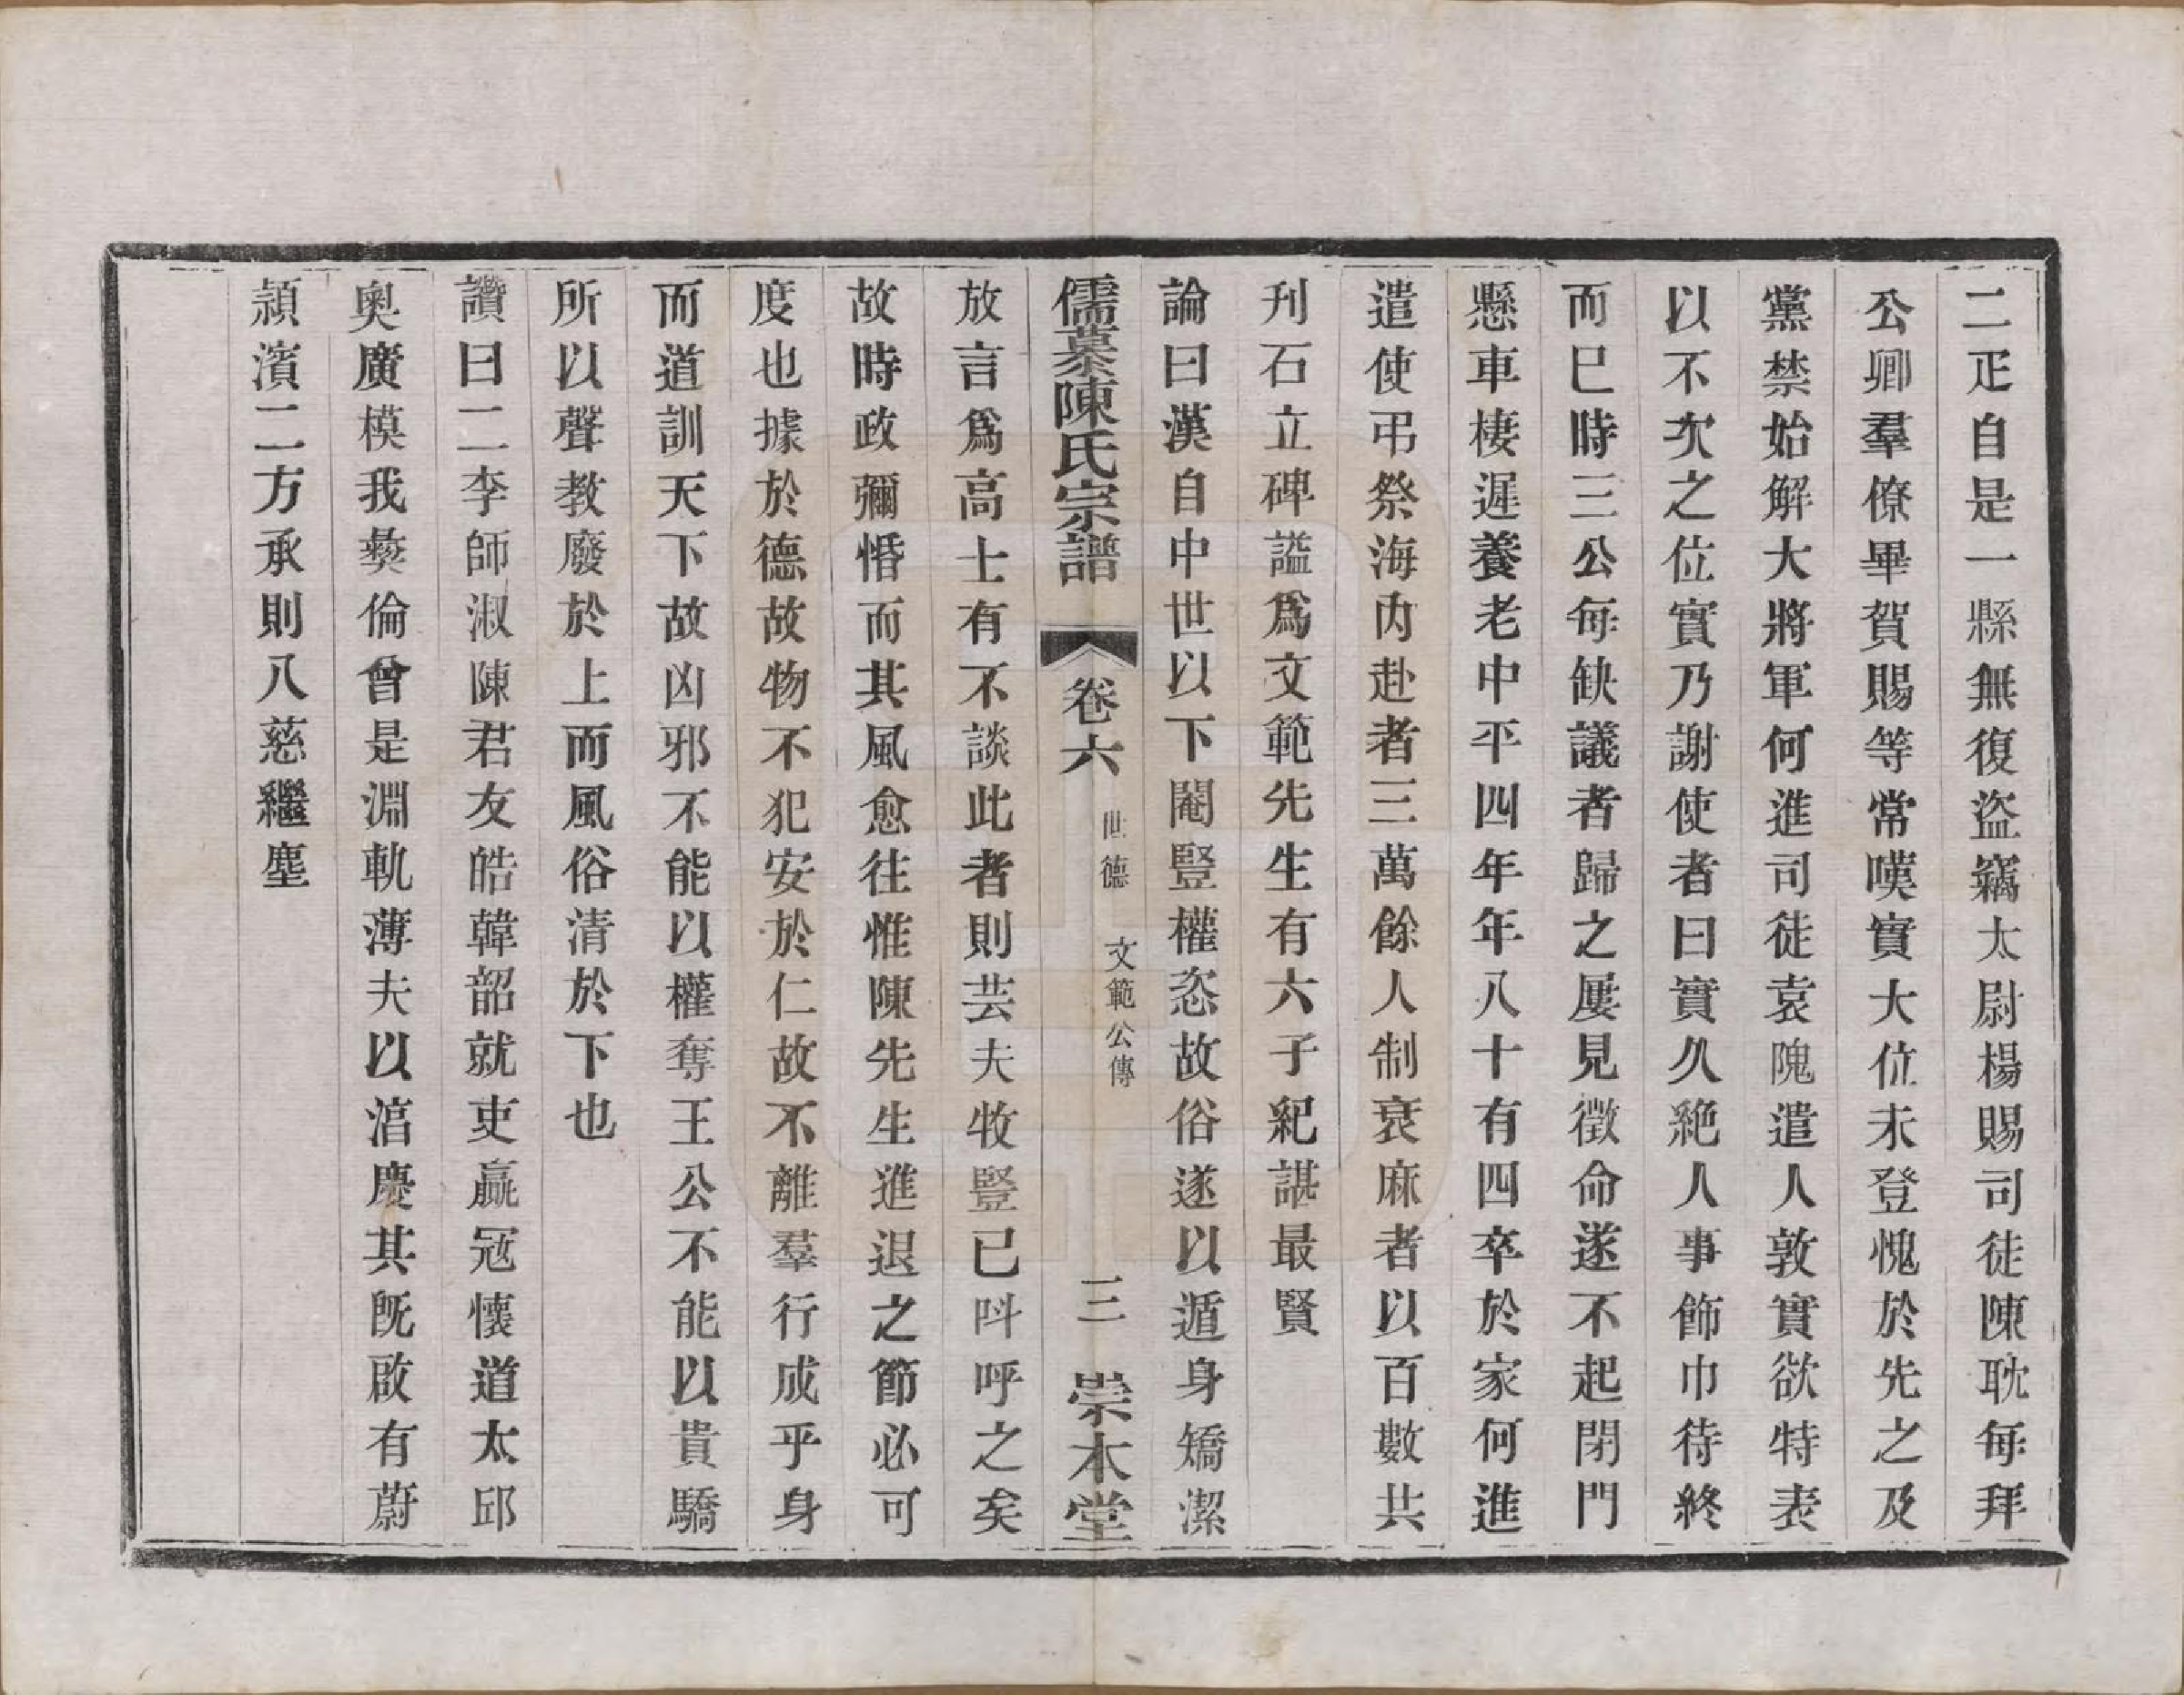 二疋自是一縣無復盜竊太尉楊賜司徒陳耽每拜
公卿羣僚畢賀賜等常嘆實大位未登愧於先之及
黨禁始解大將軍何進司徒袁隗遣人敦實欲特表
以不次之位實乃謝使者曰實久絶人事飾巾待終
而巳時三公每缺議者歸之屢見徵命遂不起閉門
懸車棲遲養老中平四年年八十有四卒於家何進
遣使弔祭海內赴者三萬餘人制衰麻者以百數共
刋石立碑謚爲文範先生有六子紀諶最賢
論曰漢自中世以下閹豎權恣故俗遂以遁身矯潔
儒慕陳氏宗譜 卷六 世德 文範公傳 三 崇本堂
放言爲高士有不談此者則芸夫牧豎已呌呼之矣
故時政彌惛而其風愈往惟陳先生進退之節必可
度也據於德故物不犯安於仁故不離羣行成乎身
而道訓天下故凶邪不能以權奪王公不能以貴驕
所以聲教廢於上而風俗清於下也
讚曰二李師淑陳君友皓韓韶就吏贏冦懷道太邱
奥廣模我彜倫曾是淵軌薄夫以淯慶其旣啟有蔚
潁濱二方承則八慈繼塵